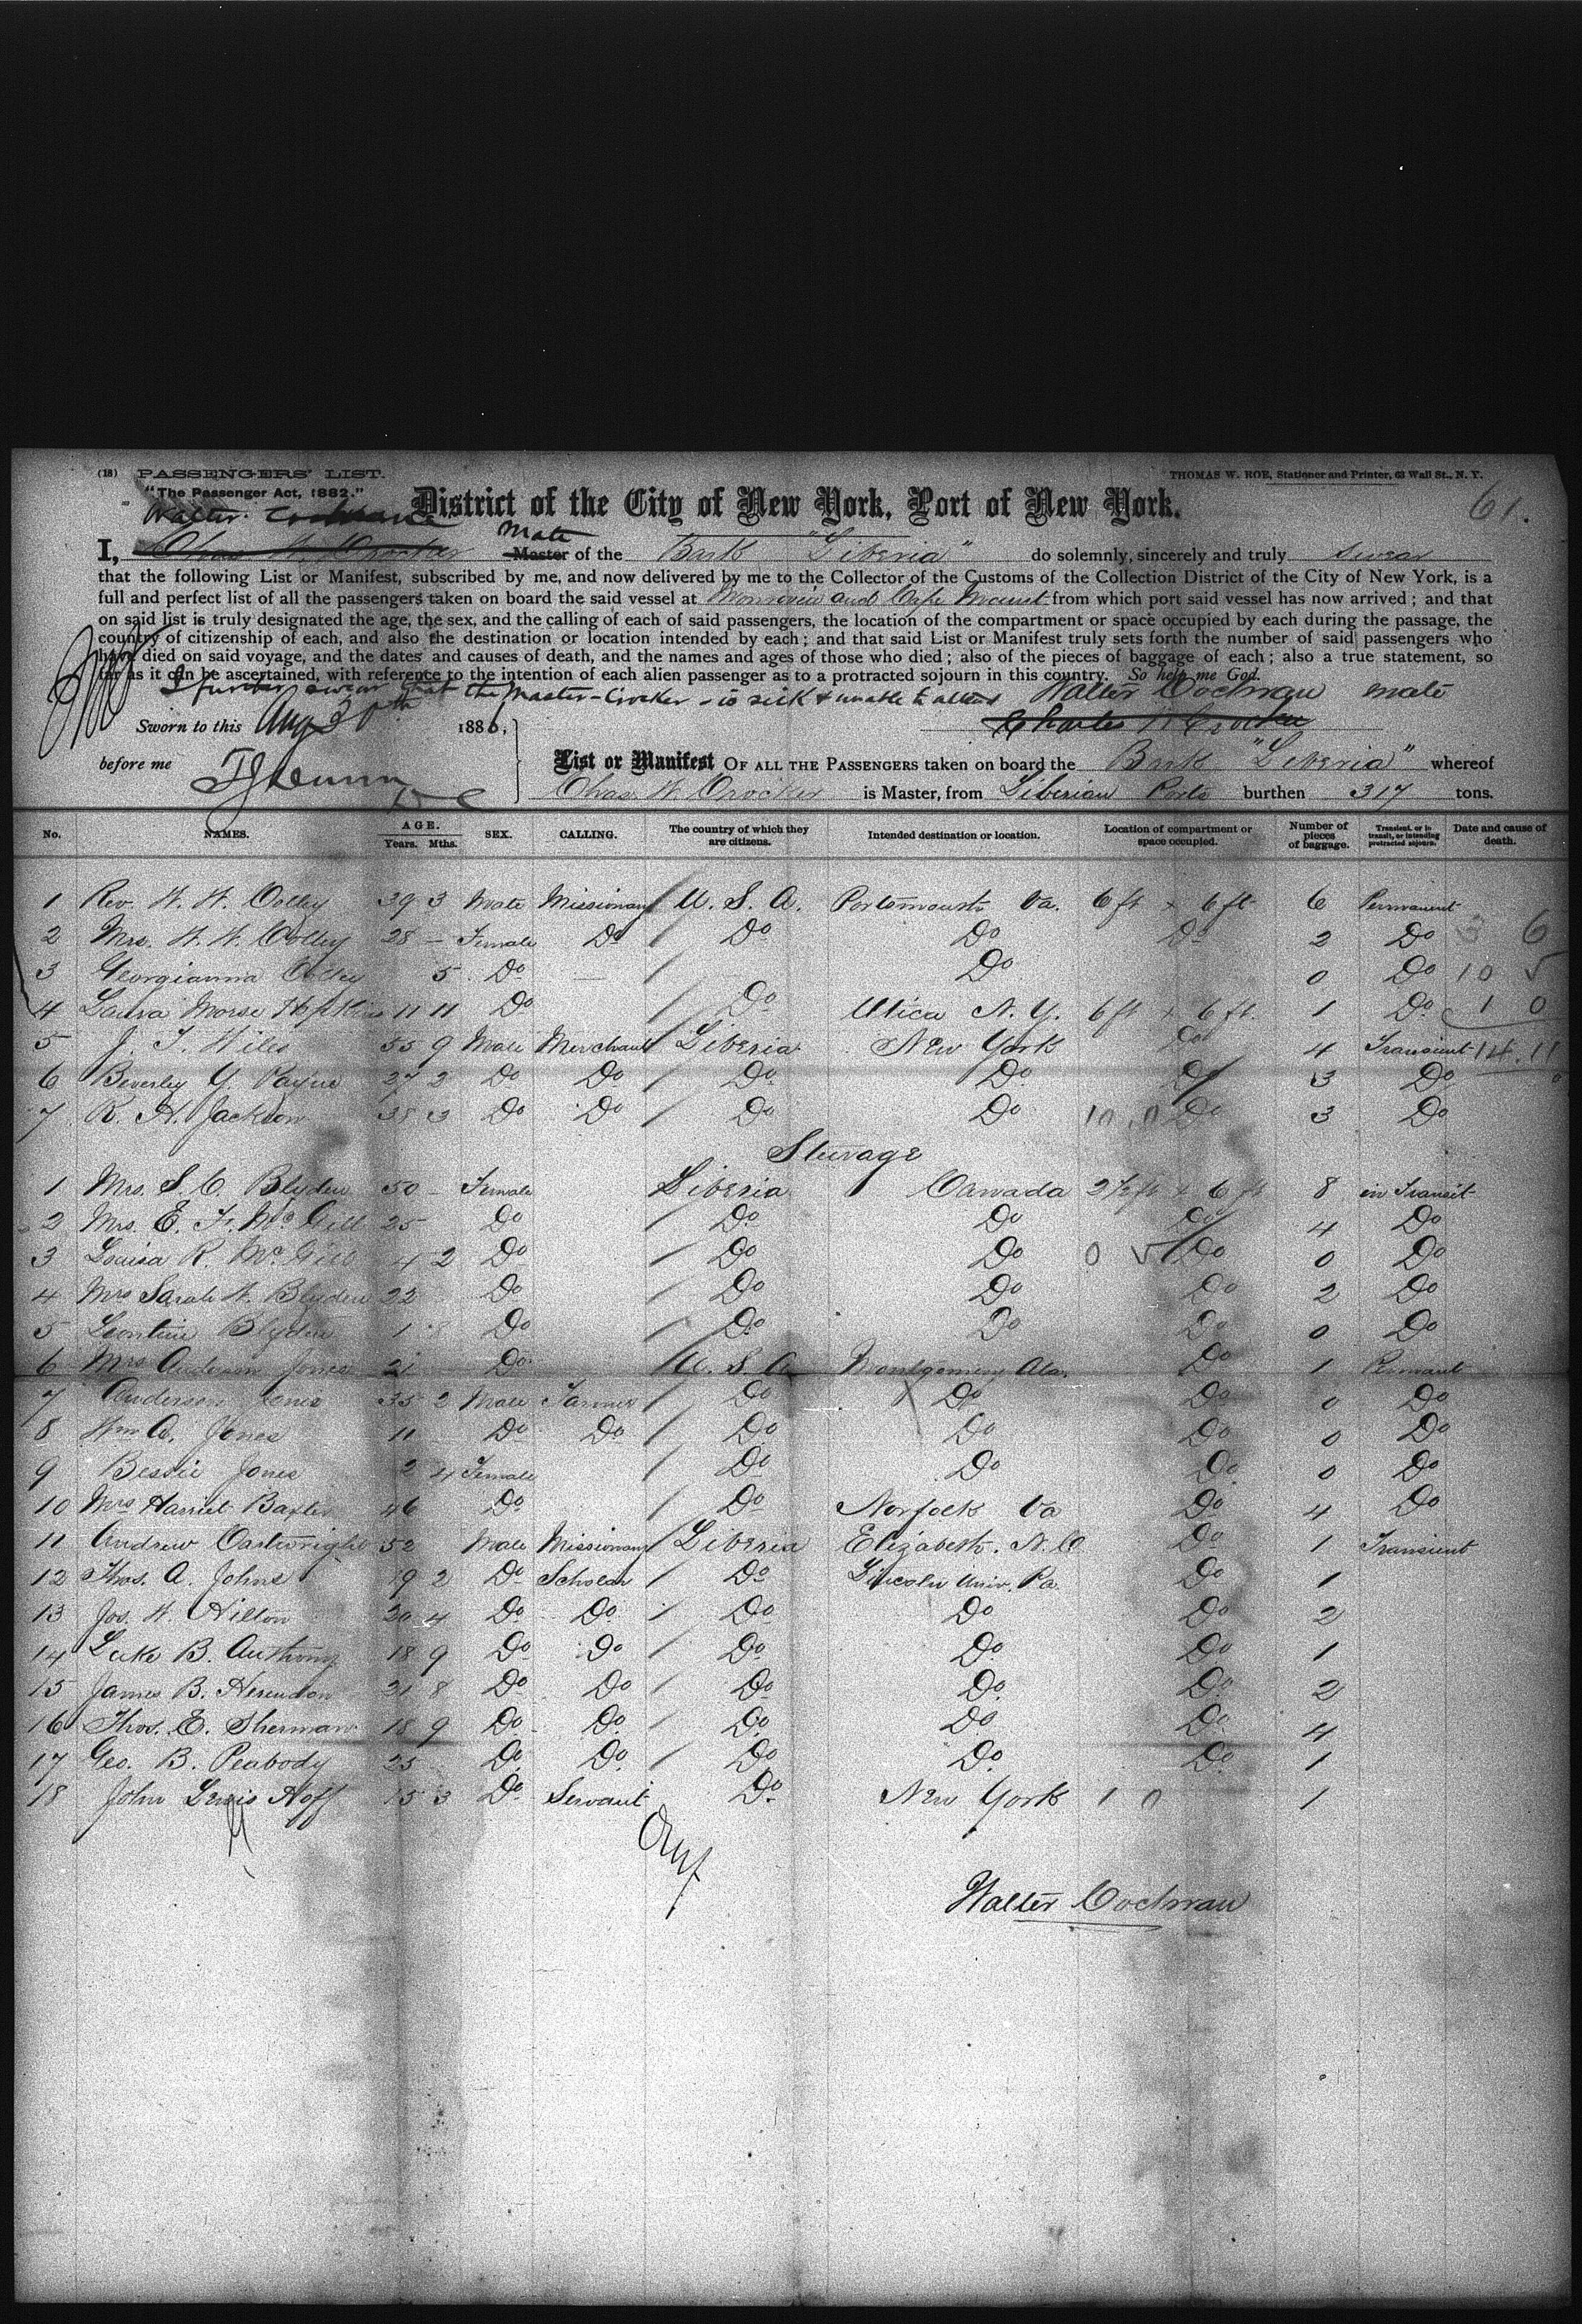 (18) PASSENGERS' LIST.
THOMAS W. ROE, Stationer and Printer, 63 Wall St., N. Y.
"The Passenger Act, 1882."
District of the City of New York, Port of New York.
61.
Walter Cochrane
Mate
I, Chas W. Crocker Master of the Bark "Liberia" do solemnly, sincerely and truly swear
that the following List or Manifest, subscribed by me, and now delivered by me to the Collector of the Customs of the Collection District of the City of New York, is a
full and perfect list of all the passengers taken on board the said vessel at Monrovia and Cape Mount from which port said vessel has now arrived; and that
on said list is truly designated the age, the sex, and the calling of each of said passengers, the location of the compartment or space occupied by each during the passage, the
country of citizenship of each, and also the destination or location intended by each; and that said List or Manifest truly sets forth the number of said passengers who
have died on said voyage, and the dates and causes of death, and the names and ages of those who died; also of the pieces of baggage of each; also a true statement, so
far as it can be ascertained, with reference to the intention of each alien passenger as to a protracted sojourn in this country. So help me God.
I further swear that the Master - Crocker - is sick & unable to attend Walter Cochran mate
Sworn to this Aug 30th 1886,
Charles W Crocker
before me
List or Manifest OF ALL THE PASSENGERS taken on board the Bark "Liberia" whereof
Chas W Crocker is Master, from Liberian Ports burthen 317 tons.
No. NAMES. AGE. Years. Mths. SEX. CALLING. The country of which they are citizens. Intended destination or location. Location of compartment or space occupied. Number of pieces of baggage. Transient, or in transit, or intending protracted sojourn. Date and cause of death.
1 Rev. W. W. Colley 39 3 Male Missionary / U. S. A. Portsmouth Va. 6 ft x 6 ft 6 Permanent
2 Mrs. W. W. Colley 28 - Female Do / Do Do Do 2 Do 3 6
3 Georgianna Colley 5 Do — / Do 0 Do 10 5
4 Laura Morse Hopkins 11 11 Do / Do Utica N. Y. 6 ft x 6 ft. 1 Do 1 0
5 J. T. Wiles 55 9 Male Merchant / Liberia New York Do 4 Transient 14.11
6 Beverley Y. Payne 27 2 Do Do / Do Do Do 3 Do
7 R. H. Jackson 38 3 Do Do / Do Do 10.0 Do 3 Do
Steerage
1 Mrs. S. C. Blyden 50 - Female Liberia Canada 2 1/2 ft x 6 ft 8 in Transit
2 Mrs. E. F. McGill 25 Do / Do Do Do 4 Do
3 Louisa R. McGill 4 2 Do / Do Do 0 5 Do 0 Do
4 Mrs Sarah W. Blyden 22 Do / Do Do Do 2 Do
5 Leontine Blyden 1 8 Do / Do Do Do 0 Do
6 Mrs Anderson Jones 21 Do U. S. A Montgomery Ala. Do 1 Permant
7 Anderson Jones 35 2 Male Farmer / Do Do Do 0 Do
8 Wm A. Jones 11 Do Do / Do Do Do 0 Do
9 Bessie Jones 2 4 Female / Do Do Do 0 Do
10 Mrs Harriet Baxter 46 Do / Do Norfolk Va Do 4 Do
11 Andrew Cartwright 52 Male Missionary / Liberia Elizabeth. N.C Do 1 Transient
12 Thos. A. Johns 19 2 Do Scholar / Do Lincoln Univ. Pa. Do 1
13 Jos. W. Hilton 20 4 Do Do / Do Do Do 2
14 Luke B. Anthony 18 9 Do Do / Do Do Do 1
15 James B. Herendon 21 8 Do Do / Do Do Do 2
16 Thos. E. Sherman 18 9 Do Do. / Do. Do Do. 4
17 Geo. B. Peabody 25 Do. Do. / Do Do. Do. 1
18 John Lewis Hoff 15 3 Do. Servant Do. New York 1 0 1
Walter Cochran